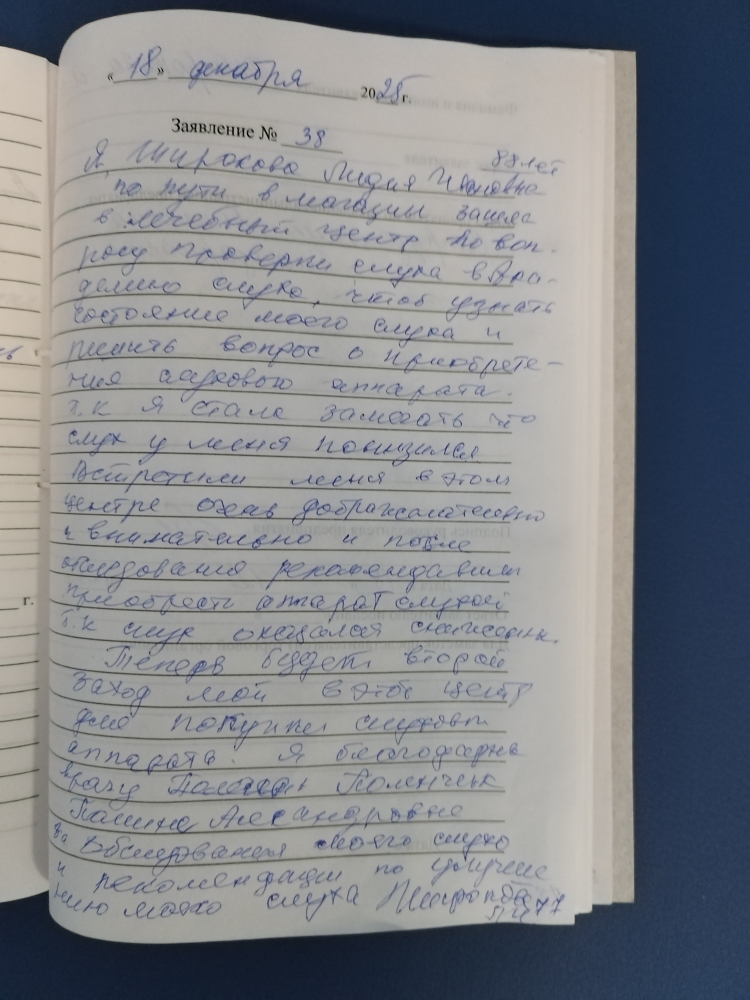 « 18 » декабря 2025 г.
Заявление № 38
88 лет
Я Широкова Лидия Ивановна
по пути в магазин зашла
в лечебный центр по воп-
росу проверки слуха в Ака-
демию слуха, чтоб узнать
состояние моего слуха и
решить вопрос о приобрете-
ния слухового аппарата.
т.к я стала замечать что
слух у меня понизился
Встретили меня в этом
центре очень доброжелательно
и внимательно и после
обследования рекомендавали
приобрести аппарат слуховой
т.к слух оказался
Теперь будет второй
заход мой в этот центр
для покупки слухового
аппарата. Я благодарна
врачу Поленчук
Галине Александровне
за обследования моего слуха
и рекомендации по улучше
нию моего слуха Широкова
г.